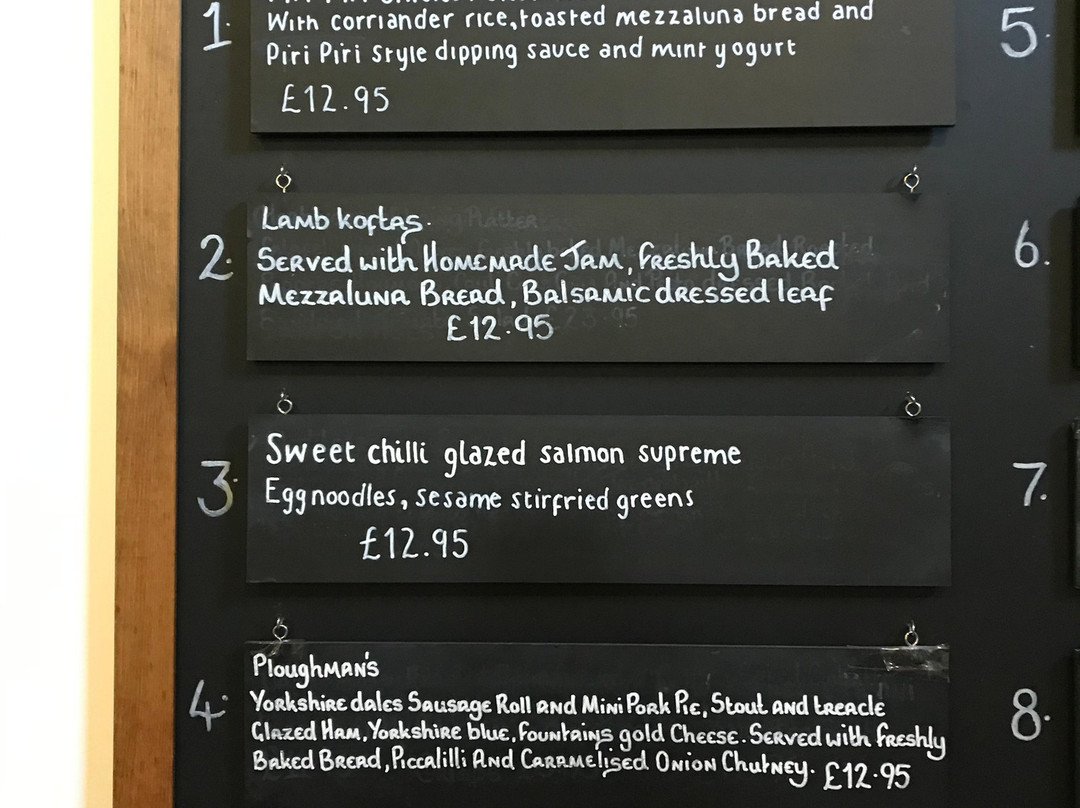 1.
With corriander rice, toasted mezzaluna bread and
Piri Piri style dipping sauce and mint yogurt
£12.95
2.
Lamb koftas.
Served with Homemade Jam, freshly Baked
Mezzaluna Bread, Balsamic dressed leaf
£12.95
3.
Sweet chilli glazed salmon supreme
Egg noodles, sesame stirfried greens
£12.95
4.
Ploughman's
Yorkshire dales Sausage Roll and Mini Pork Pie, Stout and treacle
Glazed Ham, Yorkshire blue, fountains gold Cheese. Served with freshly
Baked Bread, Piccalilli And Caramelised Onion Chutney. £12.95
5.
6.
7.
8.